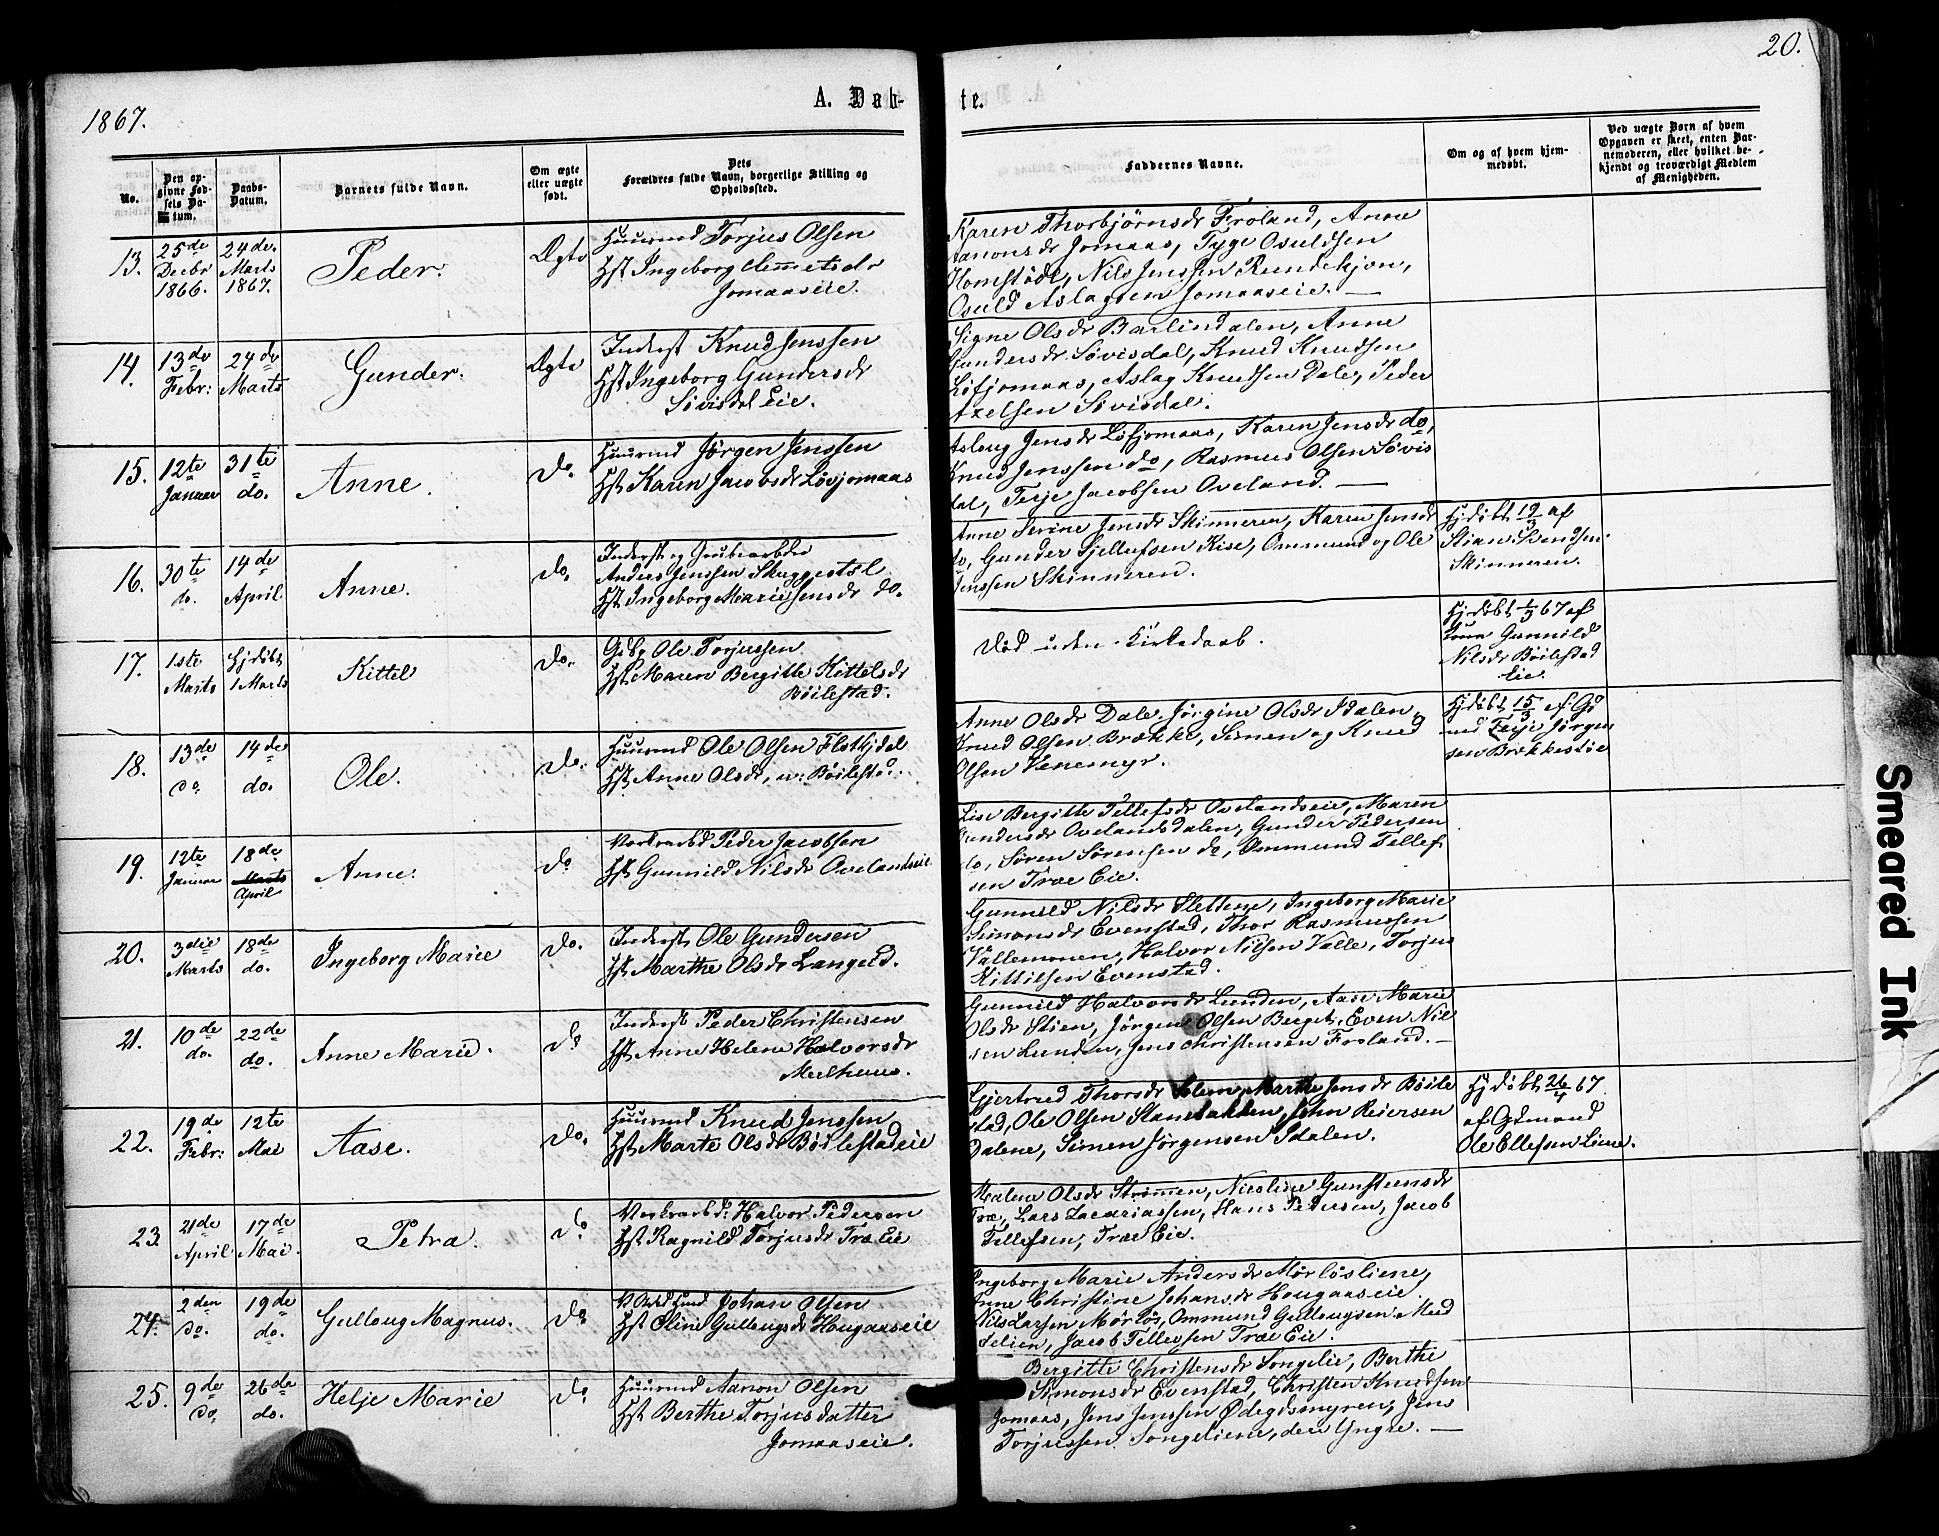 20.
1867.
A. Døb-
te.
No.
Den op-
givne Fød-
sels Da-
tum.
Daabs-
Datum.
Barnets fulde Navn.
Om ægte
eller uægte
født.
Dets
Forældres fulde Navn, borgerlige Stilling og
Opholdssted.
Faddernes Navne.
Om og af hvem hjem-
medøbt.
Ved uægte Børn af hvem
Opgaven er skeet, enten Bar-
nemoderen, eller hvilket be-
kjendt og troværdigt Medlem
af Menigheden.
13.
25de
Decbr
1866.
24de.
Marts
1867.
Peder.
Ægte
Huusmd Torjus Olsen
Hst Ingeborg Clemmetsdr
Jomaaseie.
Karen Thorbjørnsdr Froland, Anne
Aanonsdr Jomaas, Tyge Osuldsen
Homstødt, Nils Jenssen Rundekjøn,
Osuld Aslagsen Jomaaseie. —
14.
13de
Febr:
24de
Marts
Gunder.
Ægte
Inderst Knud Jenssen
Hst Ingeborg Gundersdr
Søvisdal Eie.
Signe Olsdr Barlindalen, Anne
Gundersdr Søvisdal, Knud Knudsen
Løfjomaas, Aslag Knudsen Dale, Peder
Axelsen Søvisdal.
15.
12te
Januar
31te
do.
Anne.
Do.
Huusmd Jørgen Jenssen
Hst Karen Jacobsdr Løvjomaas
Aslaug Jensdr Løfjomaas, Karen Jensdr do,
Knud Jenssen do, Rasmus Olsen Søvis
dal, Terje Jacobsen Oveland. —
16.
30te
do.
14de
April
Anne.
Do.
Inderst og Grubearbder
Anders Jenssen Skuggevsl.
Hst Ingeborg Marie Jensdr do.
Anne Serine Jensdr Skinneren, Karen Jensdr
do, Gunder Gjellufsen Kise, Ommund og Ole
Jenssen Skinneren.
Hjdøbt 19/3 af
Stian Svendsen
Skinneren.
17.
1ste
Marts
Hjdøbt
1 Marts
Kittel
Do.
Gdbr Ole Torjussen
Hst Maren Bergitte Kittelsdr
Bøilestad.
Død uden Kirkedaab.
Hjdøbt 1/3 67 af
Gunnild
Nilsdr Bøilestad
Eie.
18.
13de
do.
14de
do.
Ole.
Do.
Huusmd Ole Olsen Flatkjdal
Hst Anne Olsdr, u: Bøilestad.
Anne Olsdr Dale, Jørgine Olsdr Idalen,
Knud Olsen Brække, Simen og Knud
Olsen Venemyr.
Hjdøbt 15/3 af Gd
md Terje Jørgen
sen Brækkestøe
19.
12te
Januar
18de
April
Anne.
Do
Værkarbd Peder Jacobsen
Hst Gunnild Nilsdr Ovelandseie
Lise Bergitte Tellefsdr Ovelandseie, Maren
Gundersdr Ovelandsdalen, Gunder Pedersen
do, Søren Sørensen do, Ommund Tellef
sen Træe Eie.
20.
3die
Marts
18de
do.
Ingeborg Marie
Do.
Inderst Ole Gundersen
Hst Marthe Olsdr Langeid.
Gunnild Nilsdr Slettene, Ingeborg Marie
Simonsdr Evenstad, Thor Rasmussen
Vallemonen, Halvor Nilsen Valle, Torjus
Kittilsen Evenstad.
21.
10de
do.
22de
do.
Anne Marie.
Do
Inderst Peder Christensen
Hst Anne Helene Halvorsdr
Meelhuus.
Gunnild Halvorsdr Lunden, Aase Marie
Olsdr Stien, Jørgen Olsen Berget, Even Nil
sen Lunden, Jens Christensen Froland. —
22.
19de
Febr:
12te
Mai
Aase.
Do.
Huusmd Knud Jenssen
Hst Marte Olsdr Bøilestadeie
Gjertrud Thorsdr Solem, Marthe Jensdr Bøile
stad, Ole Olsen Slanebakken, John Reiersen
Dalene, Simen Jørgensen Idalen.
Hjdøbt 26/4 67
af Gdmand
Ole Ellefsen Liene.
23.
21de
April
17de
Mai.
Petra.
Do
Værkarbd: Halvor Pedersen
Hst Ragnild Torjusdr Træ Eie
Malene Olsdr Strømen, Nicoline Gunsteensdr
Træ, Lars Zacariassen, Hans Pedersen, Jacob
Tellefsen, Træe Eie.
24.
2den
do.
19de
do.
Gulloug Magnus.
Do
Johan Olsen
Hst Oline Gullougsdr Hougaaseie
Ingeborg Marie Andersdr Mørløsliene,
Anne Christine Johansdr Hougaaseie.
Nils Larsen Mørløs, Ommund Gullougsen Mud
delien, Jacob Tellevsen Træe Eie.
25.
9de
do.
26de
do.
Helje Marie
Do
Huusmd Aanon Olsen
Hst Berthe Torjusdatter
Jomaaseie.
Bergitte Christensdr Songelie, Berthe
Simonsdr Evenstad, Christen Knudsen
Jomaas, Jens Jenssen Ødegdsmyren, Jens
Torjussen Songeliene, den Yngre. —
Smeared Ink